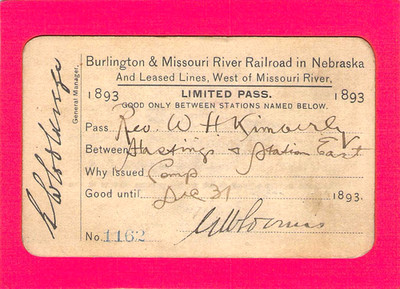 Burlington & Missouri River Railroad in Nebraska
And Leased Lines, West of Missouri River,
1893 LIMITED PASS. 1893
GOOD ONLY BETWEEN STATIONS NAMED BELOW.
Pass Rev. W. H. Kimberly
Between Hastings & Station East
Why Issued Comp
Good until Dec 31 1893.
No. 1162
General Manager.